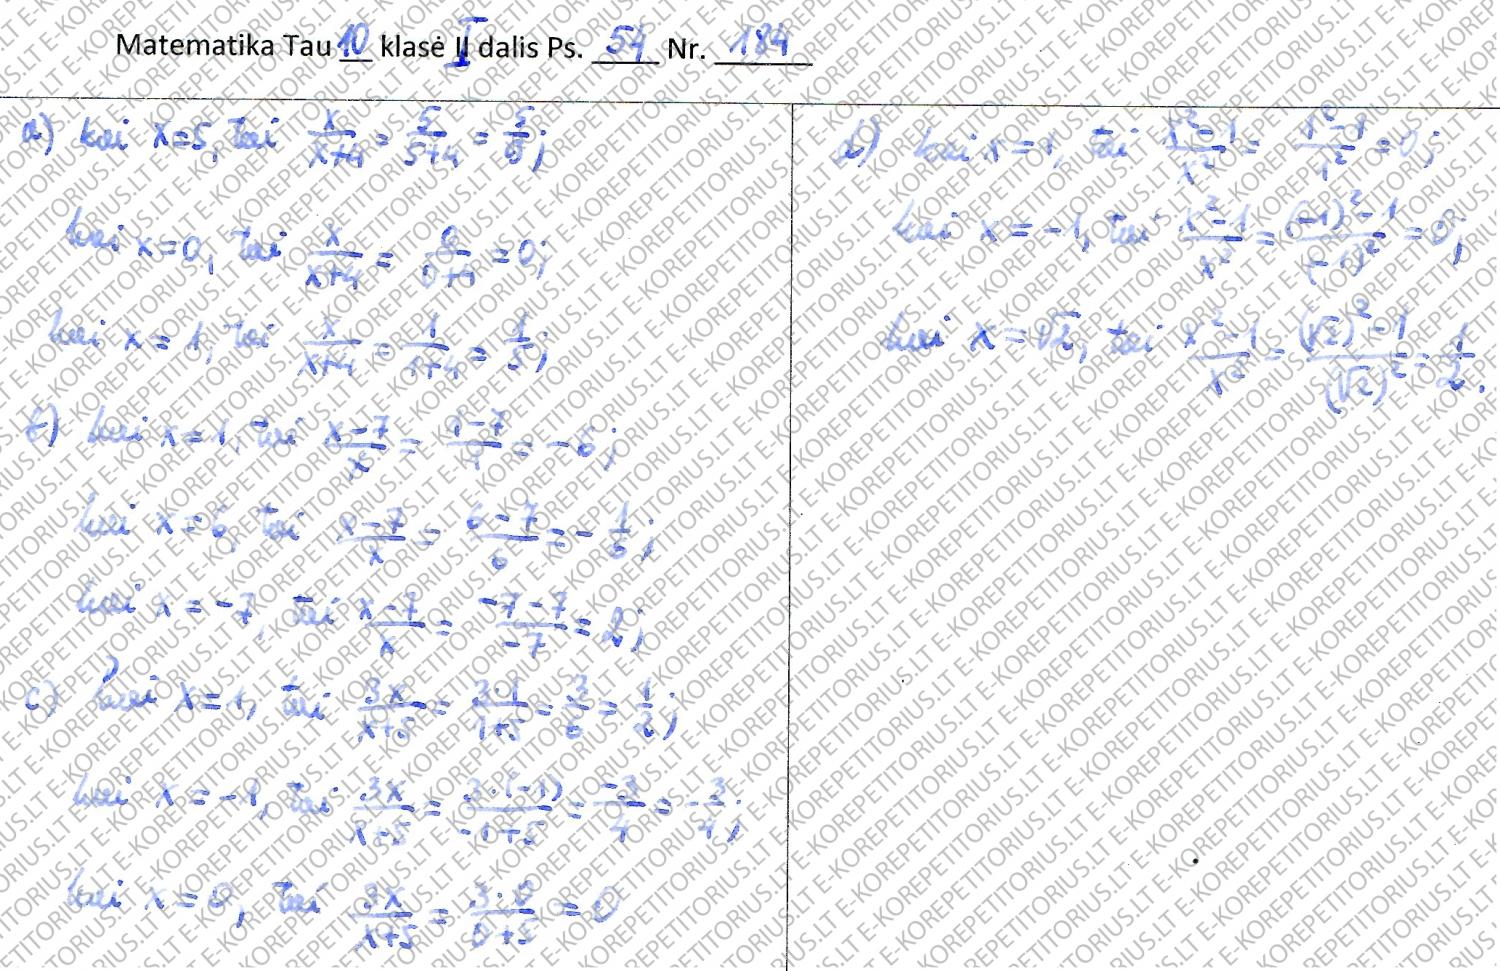 Matematika Tau 10 klasė I dalis Ps. 54 Nr. 184
a) kai x=5, tai x/(x+4) = 5/(5+4) = 5/9;
kai x=0, tai x/(x+4) = 0/(0+4) = 0;
kai x=1, tai x/(x+4) = 1/(1+4) = 1/5;
b) kai x=1, tai (x-7)/x = (1-7)/1 = -6;
kai x=6, tai (x-7)/x = (6-7)/6 = -1/6;
kai x=-7, tai (x-7)/x = (-7-7)/(-7) = 2;
c) kai x=1, tai 3x/(x+5) = (3·1)/(1+5) = 3/6 = 1/2;
kai x=-1, tai 3x/(x+5) = (3·(-1))/(-1+5) = -3/4 = -3/4;
kai x=0, tai 3x/(x+5) = (3·0)/(0+5) = 0
d) kai x=1, tai (x²-1)/x² = (1²-1)/1² = 0;
kai x=-1, tai (x²-1)/x² = ((-1)²-1)/(-1)² = 0;
kai x=√2, tai (x²-1)/x² = ((√2)²-1)/(√2)² = 1/2.
E-KOREPETITORIUS.LT